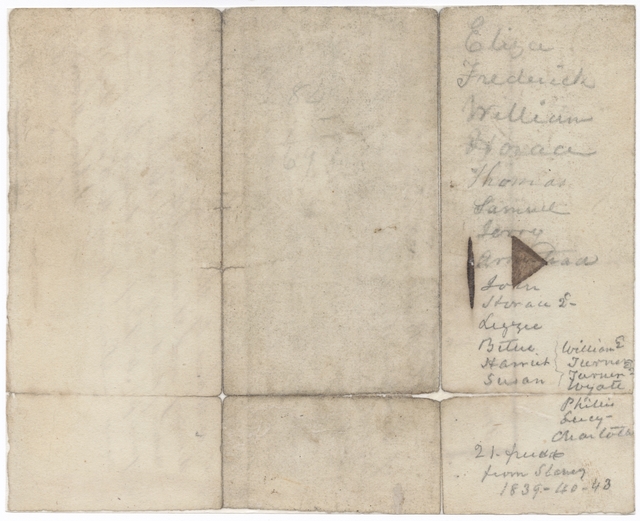 Eliza
Frederick
William
Horace
Thomas
Samuel
Jerry
Armistead
John
Horace 2-
Lizzie
Betue
Harriet
Susan
William E
Turner
Turner 2
Wyate
Phillis
Lucy-
Charlotte
21- freed
from Slavery
1839-40-43